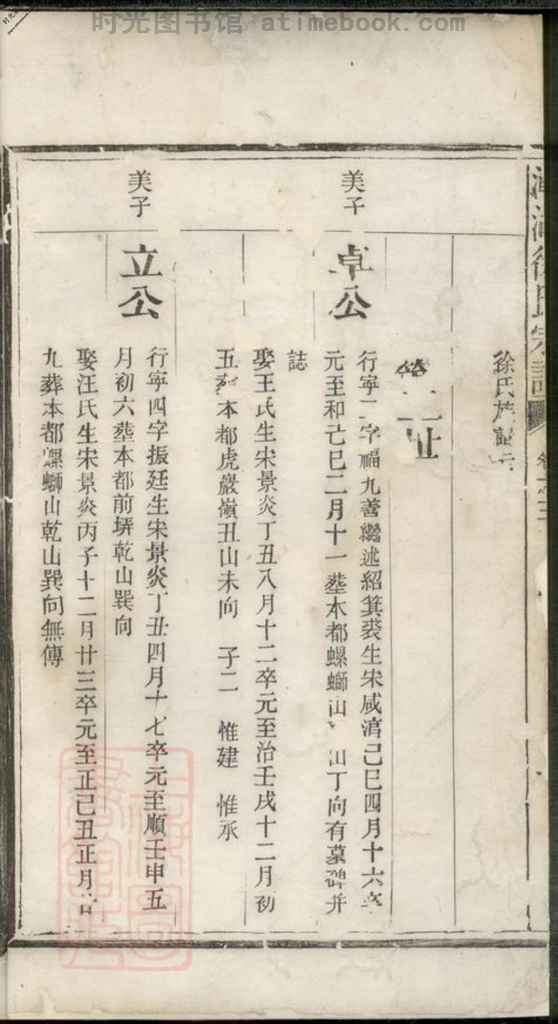 时光图书馆 - atimebook.com
徐氏宗譜
徐氏族
美子
卓公
行寧二字福九善繼述紹箕裘生宋咸淳己巳四月十六卒
元至和己巳二月十一塟本都螺螄山 山丁向有墓碑并
誌
娶王氏生宋景炎丁丑八月十二卒元至治壬戌十二月初
五 本都虎巖嶺丑山未向 子二 惟建 惟承
美子
立公
行寧四字振廷生宋景炎丁丑四月十七卒元至順壬申五
月初六塟本都前塝乾山巽向
娶汪氏生宋景炎丙子十二月廿三卒元至正己丑正月
九葬本都螺螄山乾山巽向無傳